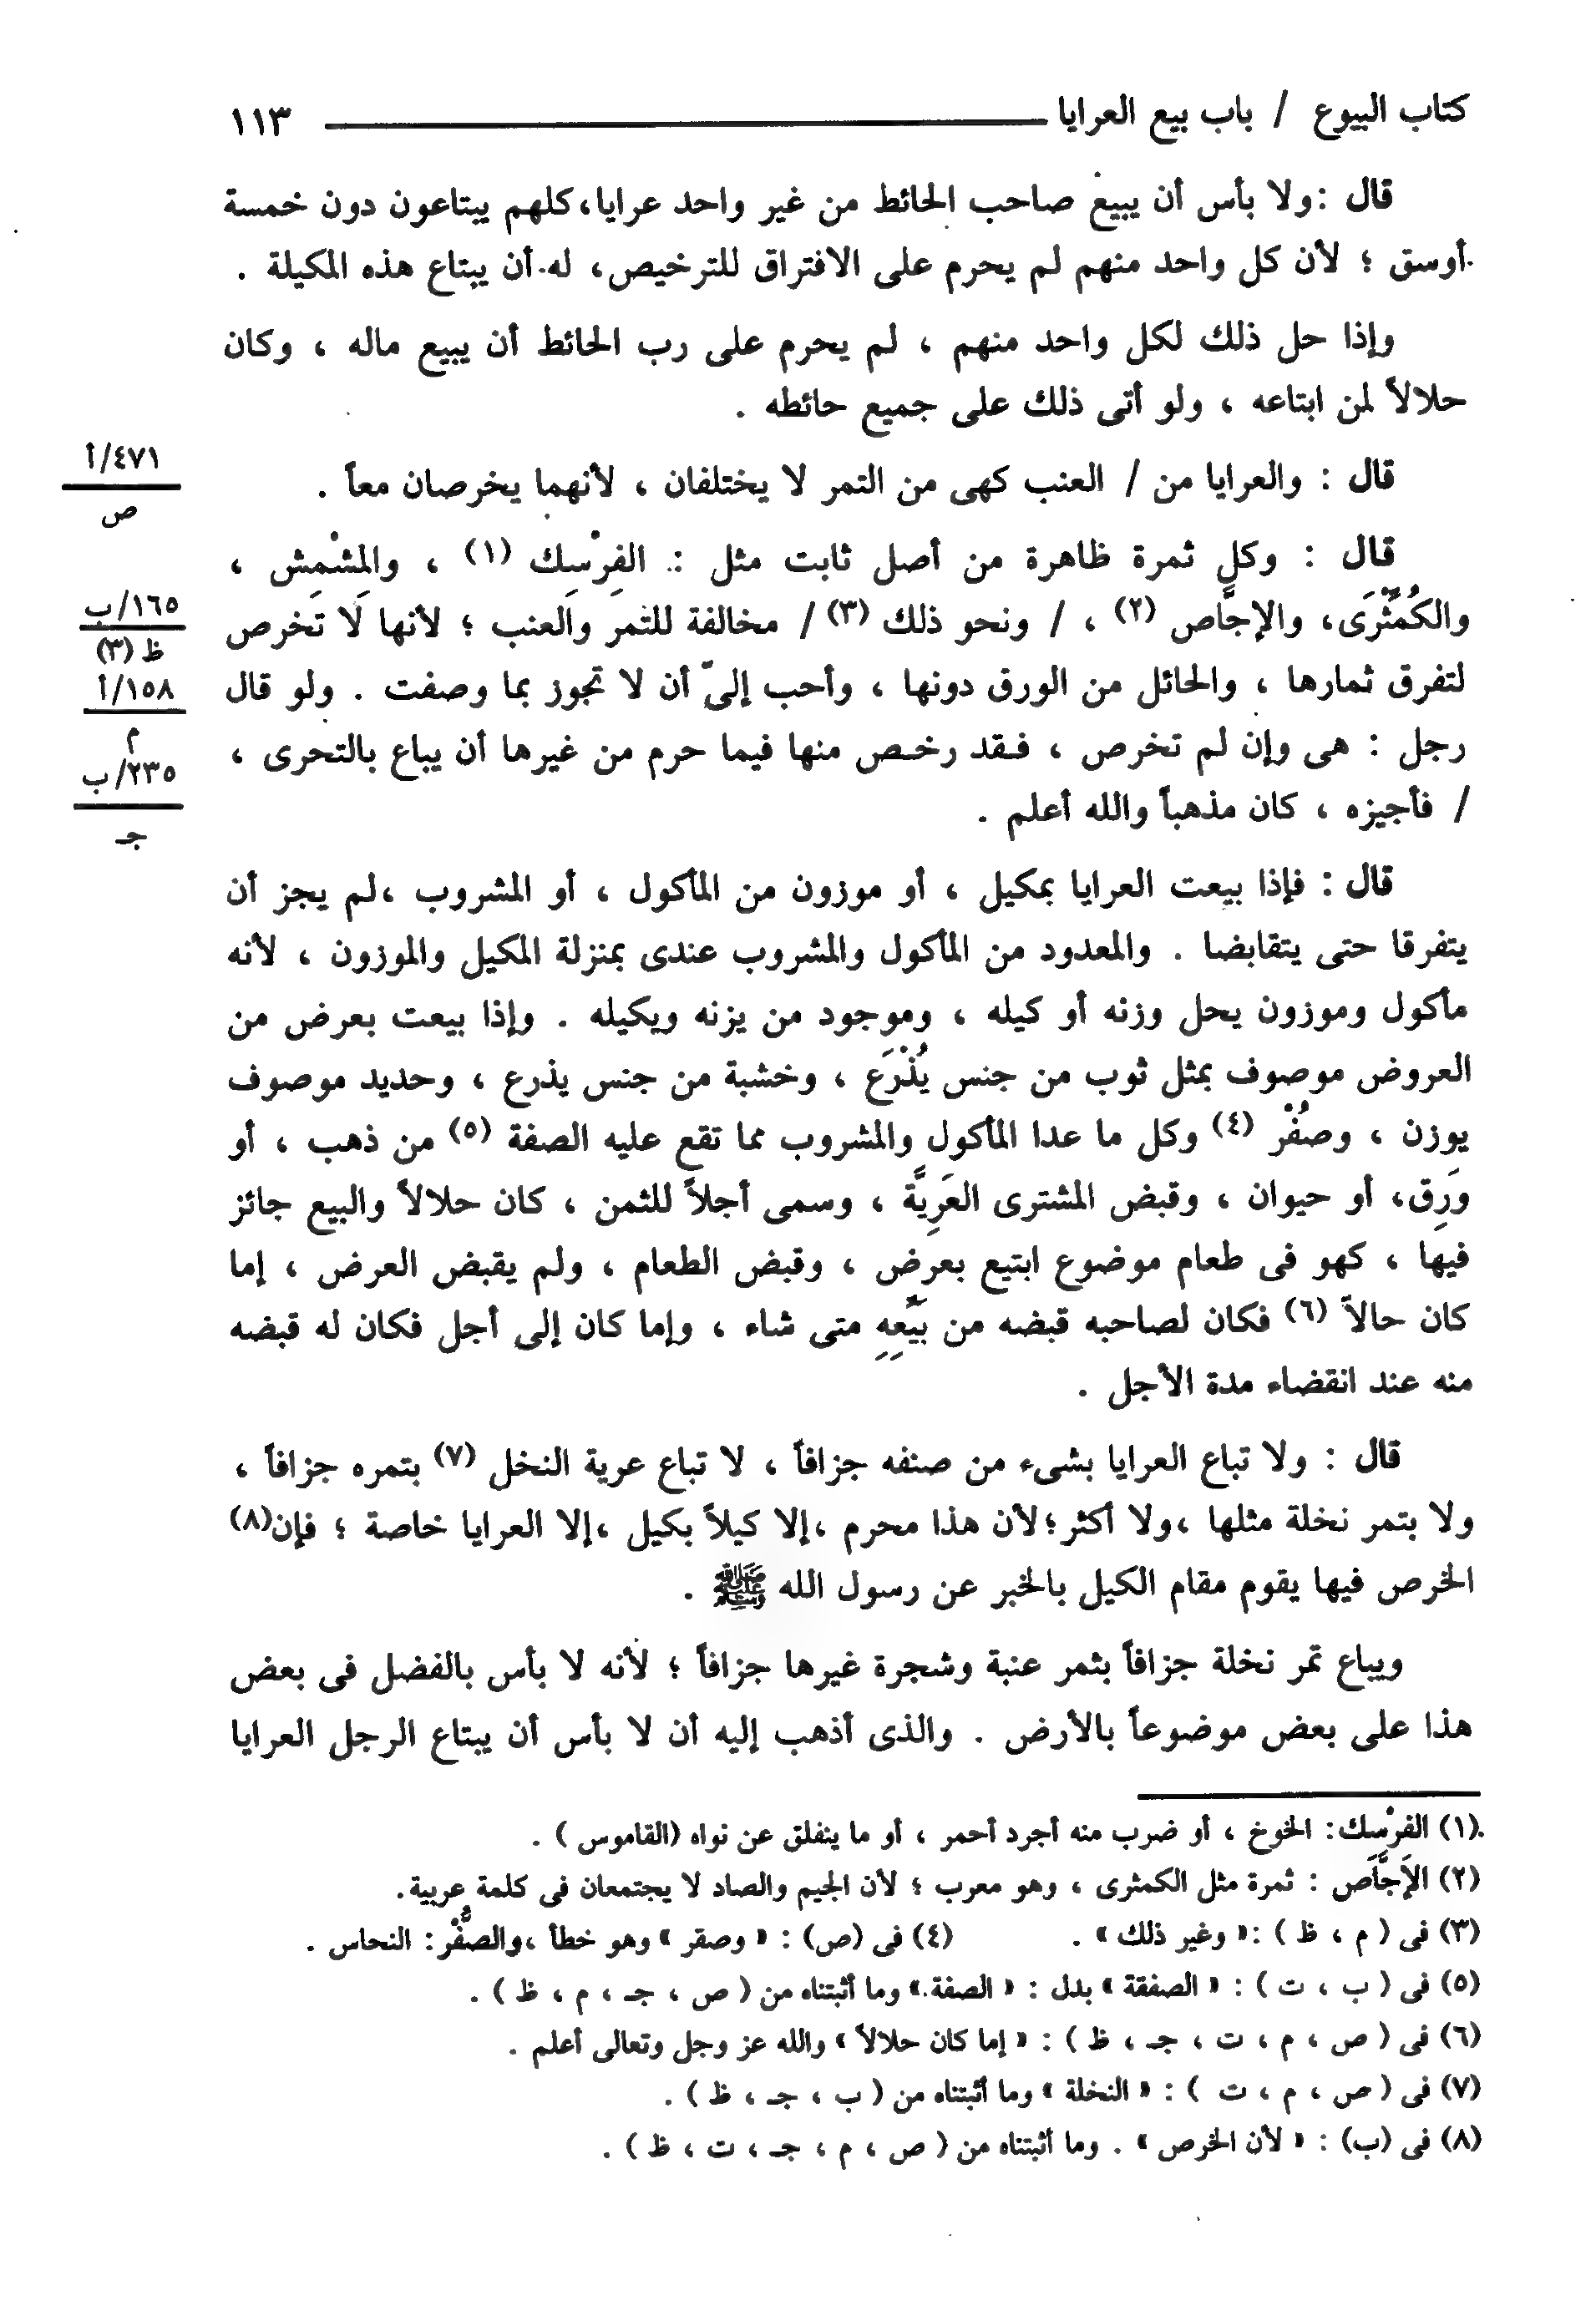 كتاب البيوع / باب بيع العرايا ١١٣
قال : ولا بأس أن يبيع صاحب الحائط من غير واحد عرايا، كلهم يبتاعون دون خمسة
أوسق ؛ لأن كل واحد منهم لم يحرم على الافتراق للترخيص، له أن يبتاع هذه المكيلة .
وإذا حل ذلك لكل واحد منهم ، لم يحرم على رب الحائط أن يبيع ماله ، وكان
حلالاً لمن ابتاعه ، ولو أتى ذلك على جميع حائطه .
قال : والعرايا من / العنب كهى من التمر لا يختلفان ، لأنهما يخرصان معاً .
٤٧١/أ
ص
قال : وكل ثمرة ظاهرة من أصل ثابت مثل : الفِرْسِك (١) ، والمِشْمِش ،
والكُمَّثْرَى، والإجَّاص (٢) ، / ونحو ذلك (٣) / مخالفة للتمر والعنب ؛ لأنها لا تخرص
لتفرق ثمارها ، والحائل من الورق دونها ، وأحب إلىّ أن لا تجوز بما وصفت . ولو قال
رجل : هى وإن لم تخرص ، فقد رخص منها فيما حرم من غيرها أن يباع بالتحرى ،
/ فأجيزه ، كان مذهباً والله أعلم .
١٦٥/ب
ظ (٣)
١٥٨/أ
م
٢٣٥/ب
جـ
قال : فإذا بيعت العرايا بمكيل ، أو موزون من المأكول ، أو المشروب ، لم يجز أن
يتفرقا حتى يتقابضا . والمعدود من المأكول والمشروب عندى بمنزلة المكيل والموزون ، لأنه
مأكول وموزون يحل وزنه أو كيله ، وموجود من يزنه ويكيله . وإذا بيعت بعرض من
العروض موصوف بمثل ثوب من جنس يُذْرَع ، وخشبة من جنس يذرع ، وحديد موصوف
يوزن ، وصُفْر (٤) وكل ما عدا المأكول والمشروب مما تقع عليه الصفة (٥) من ذهب ، أو
ورَِق، أو حيوان ، وقبض المشترى العَرِيَّة ، وسمى أجلاً للثمن ، كان حلالاً والبيع جائز
فيها ، كهو فى طعام موضوع ابتيع بعرض ، وقبض الطعام ، ولم يقبض العرض ، إما
كان حالاً (٦) فكان لصاحبه قبضه من بَيِّعِهِ متى شاء ، وإما كان إلى أجل فكان له قبضه
منه عند انقضاء مدة الأجل .
قال : ولا تباع العرايا بشىء من صنفه جزافاً ، لا تباع عرية النخل (٧) بتمره جزافاً ،
ولا بتمر نخلة مثلها ، ولا أكثر؛ لأن هذا محرم ، إلا كيلاً بكيل ، إلا العرايا خاصة ؛ فإن(٨)
الخرص فيها يقوم مقام الكيل بالخبر عن رسول الله ﷺ .
ويباع تمر نخلة جزافاً بثمر عنبة وشجرة غيرها جزافاً ؛ لأنه لا بأس بالفضل فى بعض
هذا على بعض موضوعاً بالأرض . والذى أذهب إليه أن لا بأس أن يبتاع الرجل العرايا
(١) الفِرْسِك: الخوخ ، أو ضرب منه أجرد أحمر ، أو ما ينفلق عن نواه (القاموس ) .
(٢) الإجَّاص : ثمرة مثل الكمثرى ، وهو معرب ؛ لأن الجيم والصاد لا يجتمعان فى كلمة عربية.
(٣) فى ( م ، ظ ) : « وغير ذلك » . (٤) فى (ص) : « وصقر » وهو خطأ ، والصُّفْر: النحاس .
(٥) فى ( ب ، ت ) : « الصفقة » بدل : « الصفة » وما أثبتناه من ( ص ، جـ ، م ، ظ ) .
(٦) فى ( ص ، م ، ت ، جـ ، ظ ) : « إما كان حلالاً » والله عز وجل وتعالى أعلم .
(٧) فى ( ص ، م ، ت ) : « النخلة » وما أثبتناه من ( ب ، جـ ، ظ ) .
(٨) فى (ب) : « لأن الخرص » . وما أثبتناه من ( ص ، م ، جـ ، ت ، ظ ) .